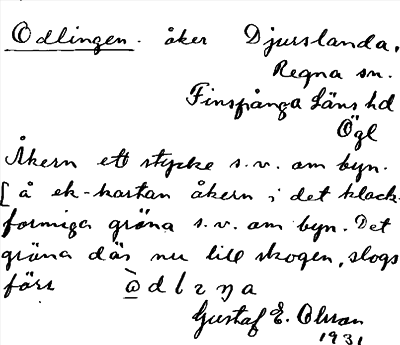 Odlingen. åker Djurslanda,
Regna sn.
Finspånga Läns hd
Ögl
Åkern ett stycke s.v. om byn.
[å ek-kartan åkern i det klock-
formiga gröna s.v. om byn. Det
gröna där nu till skogen, slogs
förr
Gustaf E. Olsson
1931